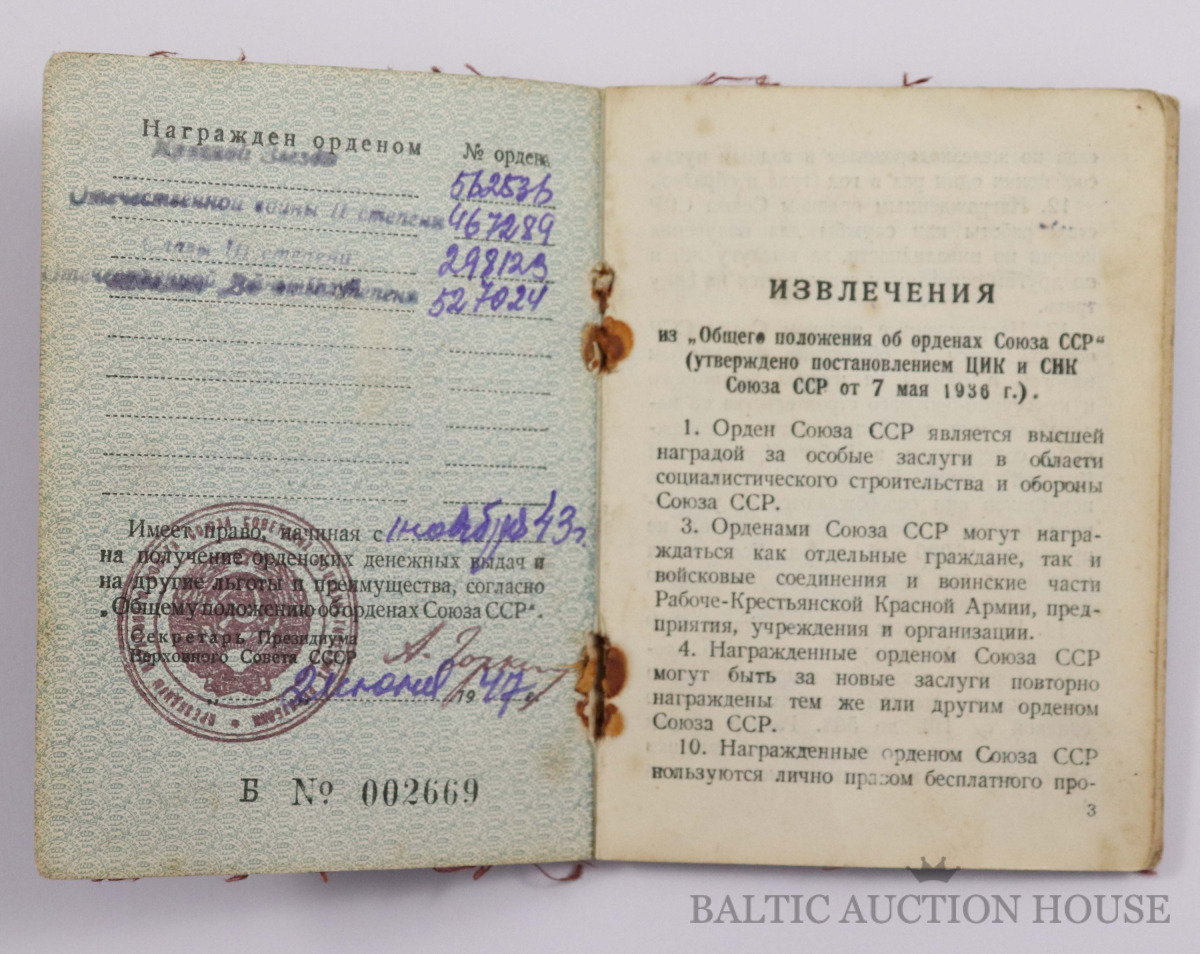 Награжден орденом
№ ордена
Красной Звезды
562536
Отечественной войны II степени
467289
Славы III степени
298123
Отечественной Войны степени
527024
Имеет право, начиная с 1 ноября 43 г.
на получение орденских денежных выдач и
на другие льготы и преимущества, согласно
„Общему положению об орденах Союза ССР“.
Секретарь Президиума
Верховного Совета СССР
2 июня 1947 г.
Б № 002669
ИЗВЛЕЧЕНИЯ
из „Общего положения об орденах Союза ССР“
(утверждено постановлением ЦИК и СНК
Союза ССР от 7 мая 1936 г.).
1. Орден Союза ССР является высшей
наградой за особые заслуги в области
социалистического строительства и обороны
Союза ССР.
3. Орденами Союза ССР могут награ-
ждаться как отдельные граждане, так и
войсковые соединения и воинские части
Рабоче-Крестьянской Красной Армии, пред-
приятия, учреждения и организации.
4. Награжденные орденом Союза ССР
могут быть за новые заслуги повторно
награждены тем же или другим орденом
Союза ССР.
10. Награжденные орденом Союза ССР
пользуются лично правом бесплатного про-
3
BALTIC AUCTION HOUSE